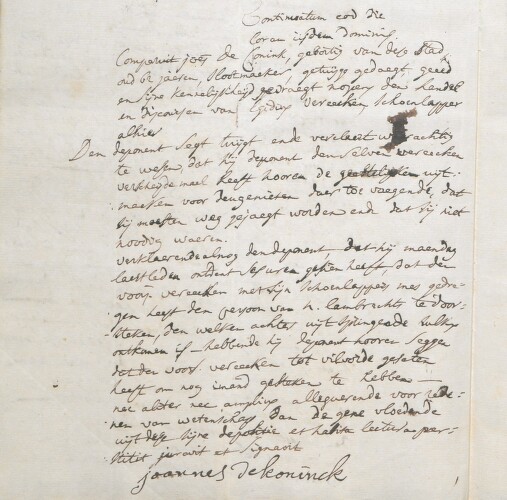 Continuatum eod die
Coram ijsdem Dominis.
Comparuit joês De Conink, gebortig van dese stad
oud 62 jaeren, slootmaeker, getuyge gedaegt, geëed
en sijne kennelijckheijd gevraegt nopens den handel
en discoursen van Egidius Vereecken schoenlapper
alhier
Den deponent segt tuijgt ende verclaert waerachtig
te wesen, dat hij deponent den selven vereecken
verscheyde mael heeft hooren de geestelijken uijt-
maeken voor deugenieten daer toe voegende, dat
sij moesten weg gejaegt worden ende dat sij niet
noodig waeren.
verclaerende alnog den deponent, dat hij maendag
laestleden ontrent ses uren gesien heeft, dat den
voors. vereecken met sijn schoenlappers mes gedre-
gen heeft den persoon van N. lambrechts te door-
steken, den welken achter uijt springende sulks
ontkomen is — hebbende hij deponent hooren seggen
dat den voors. vereecken tot vilvorde geseten
heeft om nog imand gesteken te hebben —
nec aliter nec amplius allegerende voor rede-
nen van wetenschap dan de gene vloeiende
uijt dese sijne depositie et habita lectura per-
stitit juravit et signavit
joannes dekoninck